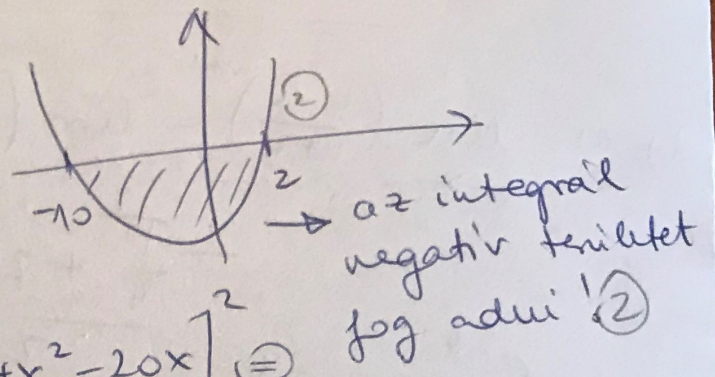 ②
-10
2
→ az integrál
negatív területet
fog adni! ②
+x² - 20x]² (=)